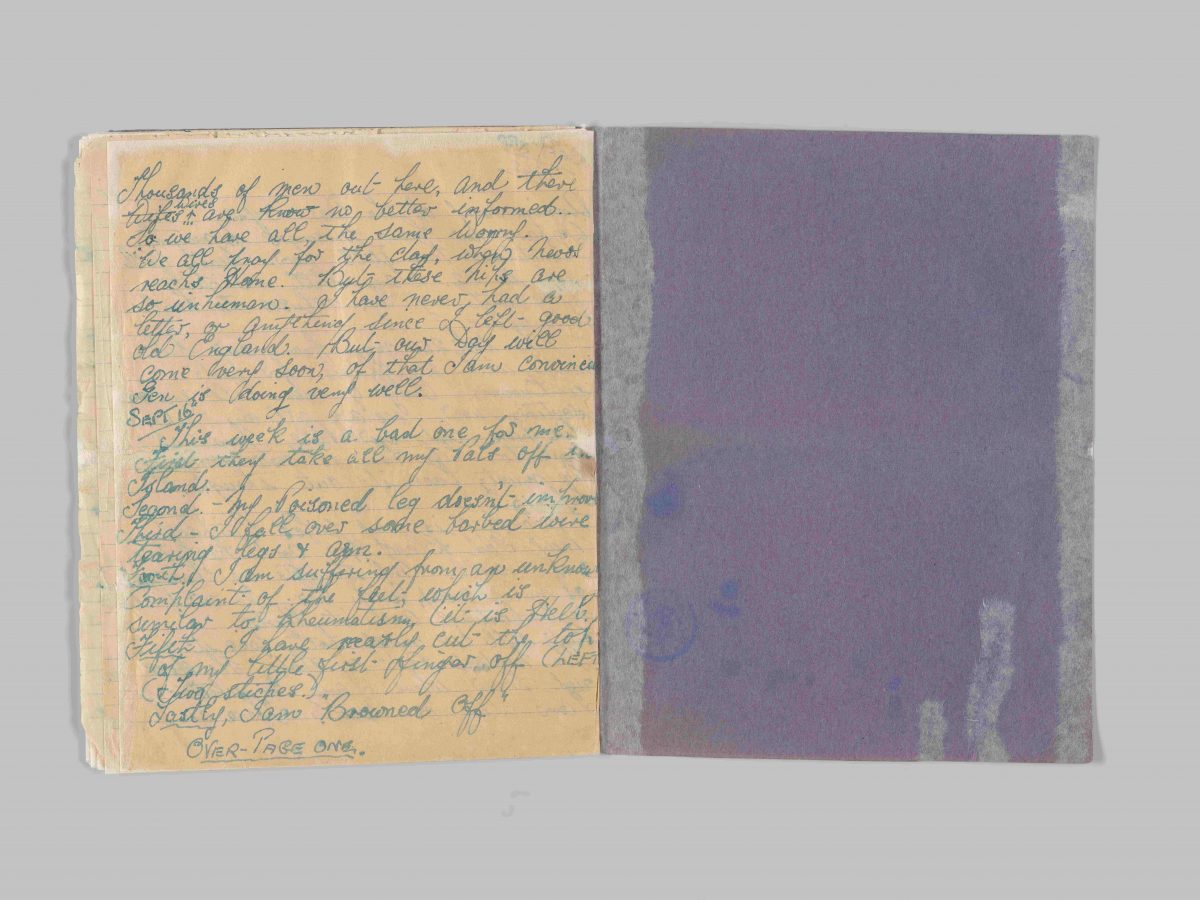 Thousands of men out here, and there
wifes wives are know no better informed..
So we have all, the same worry.
We all pray for the day, when news
reachs Home. But these nips are
so inhuman. I have never had a
letter, or anythind since I left good
old England. But our Day will
come very soon, of that I am convinc
Gen is doing very well.
SEPT 16"
This week is a bad one for me.
First they take all my Pals off in
Island.
Second. - My Poisoned leg doesn't improv
Third - I fall over some barbed wire
tearing legs & arm.
Fourth, I am suffering from an unknow
Complaint of the feet which is
similar to Rheumatism (it is Hell.
Fifth I have nearly cut the top
of my little first finger off (LEFT
(Two stiches.)
Lastly, I am "Browned Off"
OVER-PAGE ONE.